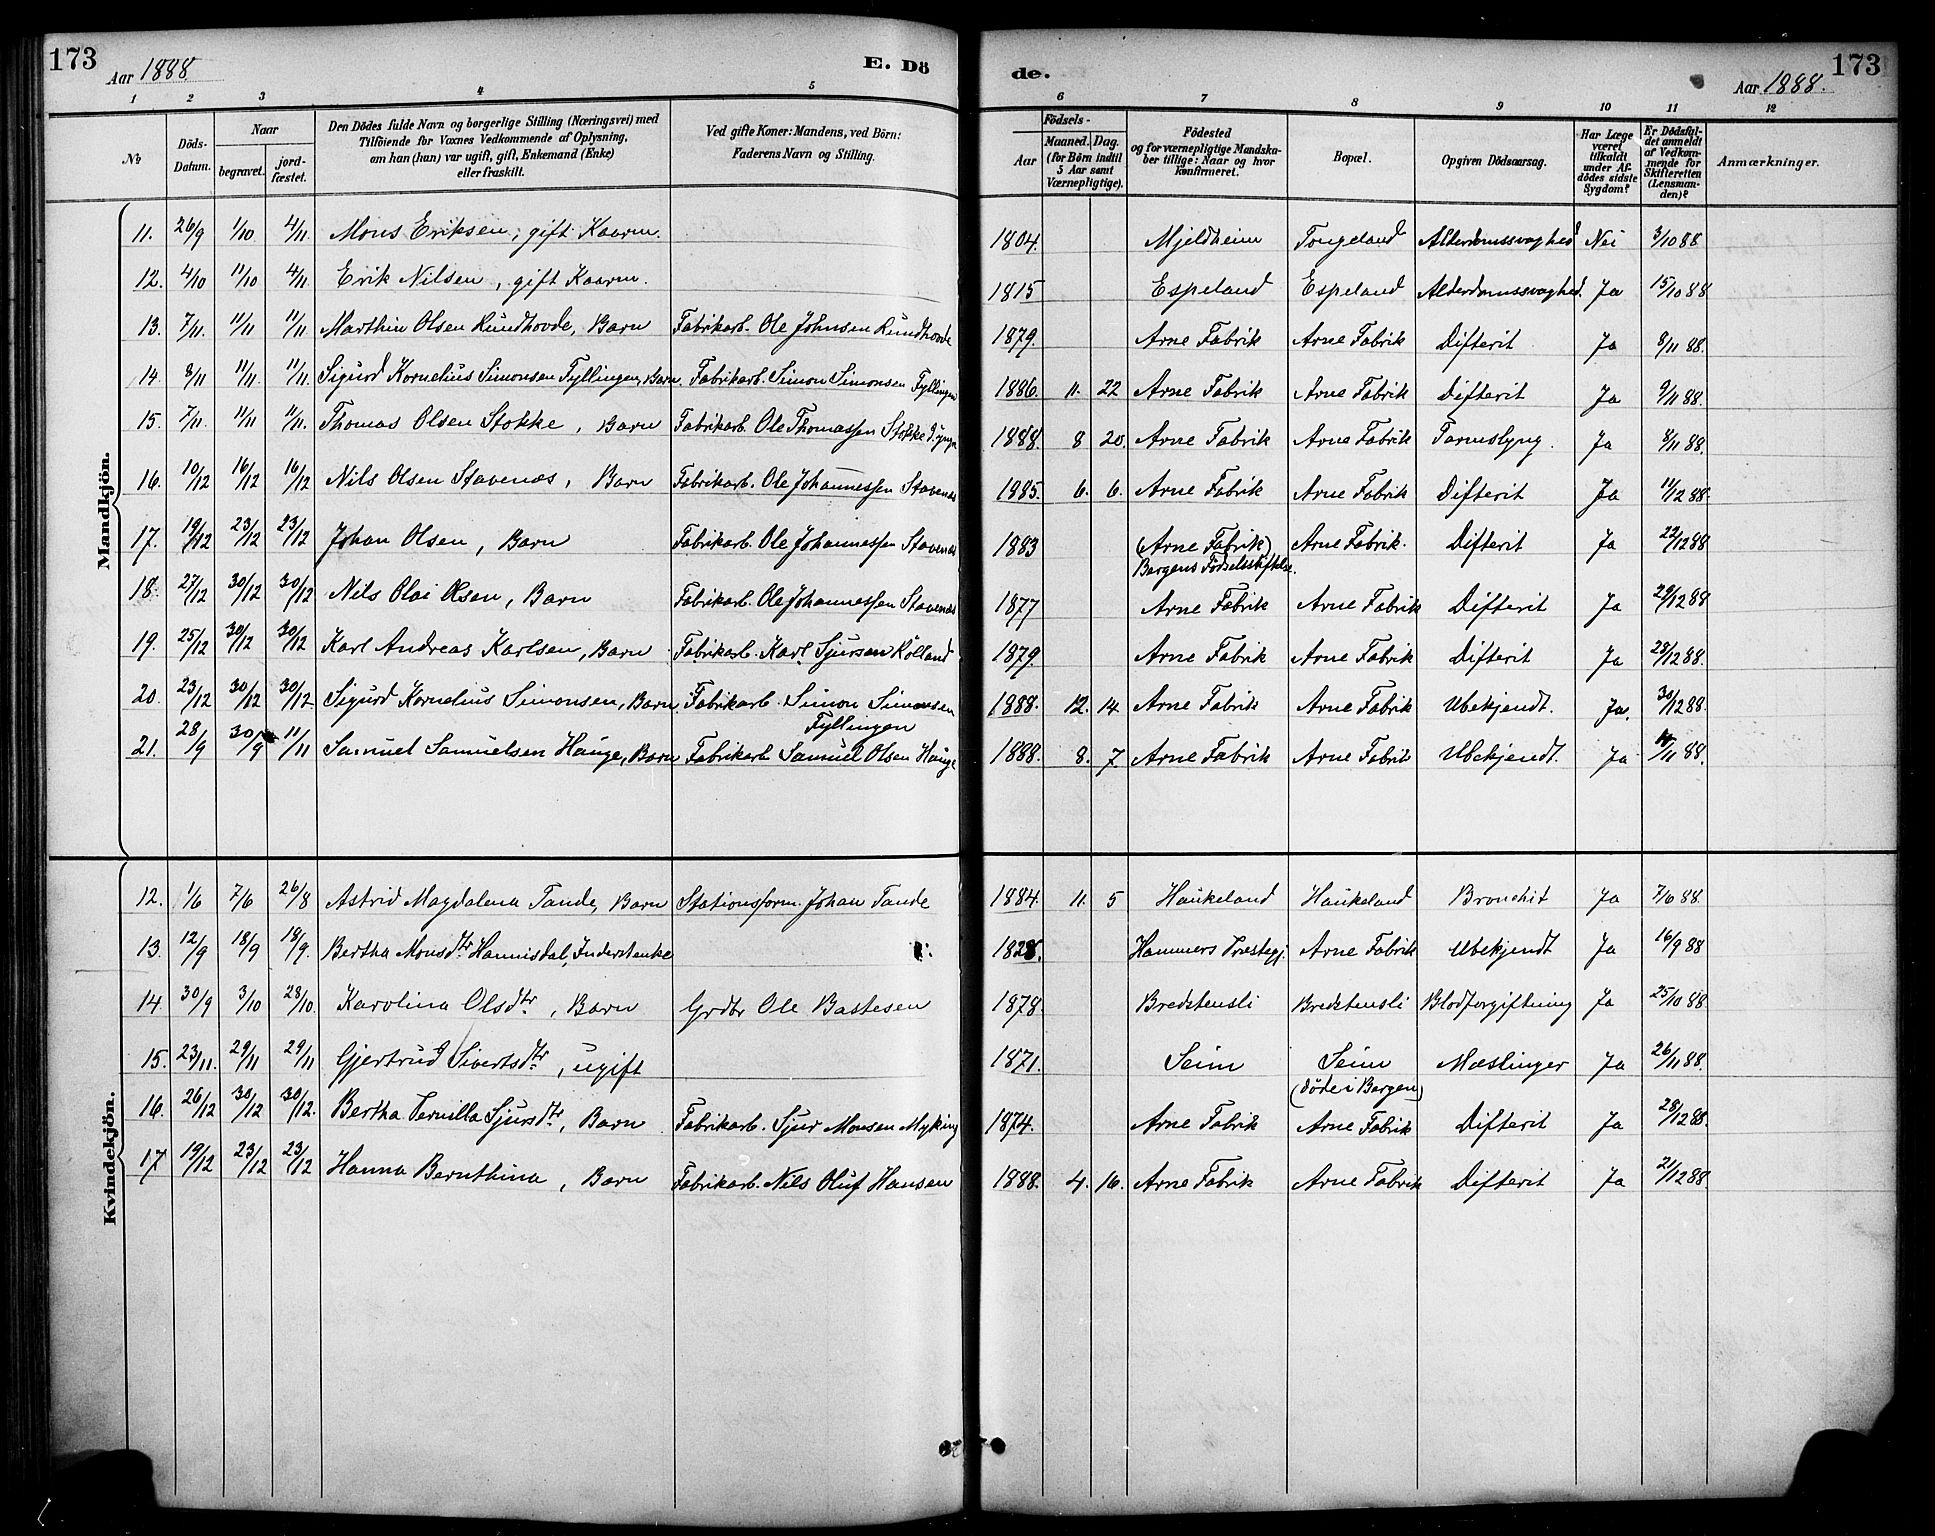 173
Aar 1888.
E. Dö
1 2 3 4 5
No
Döds-
Datum.
Naar
begravet.
jord-
fæstet.
Den Dödes fulde Navn og borgerlige Stilling (Næringsvei) med
Tilföiende for Voxnes Vedkommende af Oplysning,
om han (hun) var ugift, gift, Enkemand (Enke)
eller fraskilt.
Ved gifte Koner: Mandens, ved Börn:
Faderens Navn og Stilling.
Mandkjön.
11. 26/9 1/10 4/11 Mons Eriksen, gift Kaarm.
12. 4/10 11/10 4/11 Erik Nilsen, gift Kaarm.
13. 7/11. 11/11 11/11. Marthin Olsen Rundhovde, Barn Fabrikarb. Ole Johnsen Rundhovde
14. 8/11 11/11. 11/11. Sigurd Kornelius Simonsen Fyllingen, Barn Fabrikarb. Simon Simonsen Fyllingen
15. 7/11. 11/11 11/11. Thomas Olsen Stokke, Barn Fabrikarb. Ole Thomassen Stokke
16. 10/12 16/12 16/12 Nils Olsen Stavenæs, Barn Fabrikarb. Ole Johannessen Stavenæs
17. 19/12 23/12 23/12 Johan Olsen, Barn Fabrikarb. Ole Johannessen Stavenæs
18. 27/12 30/12 30/12 Nils Olai Olsen, Barn Fabrikarb. Ole Johannessen Stavenæs
19. 25/12 30/12 30/12 Karl Andreas Karlsen, Barn Fabrikarb. Karl Sjursen Rolland
20. 23/12 30/12 30/12 Sigurd Kornelius Simonsen, Barn Fabrikarb. Simon Simonsen
Fyllingen
21. 28/9 30/9 11/11 Samuel Samuelsen Hauge, Barn Fabrikarb Samuel Olsen Hauge
Kvindekjön.
12. 1/6 7/6 26/8 Astrid Magdalena Tande, Barn Stationsform. Johan Tande
13. 12/9 18/9 18/9. Bertha Monsdtr Hannisdal, Inderstenke
14. 30/9 3/10 28/10. Karolina Olsdtr, Barn Grdbr Ole Bastesen
15. 23/11. 29/11 29/11 Gjertrud Sivertsdtr, ugift
16. 26/12 30/12 30/12. Bertha Pernilla Sjursdtr, Barn Fabrikarb. Sjur Monsen Myking
17 19/12 23/12 23/12 Hanna Bernthina, Barn Fabrikarb. Nils Oluf Hansen
de.
173
Aar 1888.
6 7 8 9 10 11 12
Födsels-
Aar
Maaned. Dag.
(for Börn indtil
5 Aar samt
Værnepligtige).
Födested
og for værnepligtige Mandska-
ber tillige: Naar og hvor
konfirmeret.
Bopæl.
Opgiven Dödsaarsag.
Har Læge
været
tilkaldt
under Af-
dödes sidste
Sygdom?
Er Dödsfal-
det anmeldt
af Vedkom-
mende for
Skifteretten
(Lensman-
den)?
Anmærkninger.
1804. Mjeldheim Tongeland Alderdomssvaghed Nei 3/10 88
1815 Espeland Espeland Alderdomssvaghed. Ja 15/10 88
1879. Arne Fabrik Arne Fabrik Difterit Ja 8/11 88.
1886. 11. 22 Arne Fabrik Arne Fabrik Difterit Ja 9/11 88.
1888. 8 20. Arne Fabrik Arne Fabrik Tarmslyng. Ja 8/11 88.
1885. 6. 6. Arne Fabrik Arne Fabrik Difterit Ja 11/12 88.
1883 (Arne Fabrik) Arne Fabrik. Difterit Ja 22/12 88
Bergens Fødselsstiftelse.
1877 Arne Fabrik Arne Fabrik Difterit Ja 29/12 88
1879 Arne Fabrik Arne Fabrik Difterit Ja 28/12 88.
1888. 12. 14 Arne Fabrik Arne Fabrik Ubekjendt. Ja. 30/12 88.
1888. 8. 7. Arne Fabrik Arne Fabrik Ubekjendt. Ja /11 88.
1884. 11. 5 Haukeland Haukeland Bronchit Ja 7/6 88.
1828. Hammers Præstegj. Arne Fabrik Ubekjendt Ja 16/9 88
1878. Bredstensli Bredstensli Blodforgiftning Ja 25/10 88
1871. Seim Seim Mæslinger Ja 26/11 88.
(døde i Bergen)
1874. Arne Fabrik Arne Fabrik Difterit Ja 28/12 88.
1888. 4. 16. Arne Fabrik Arne Fabrik Difterit Ja 21/12 88.